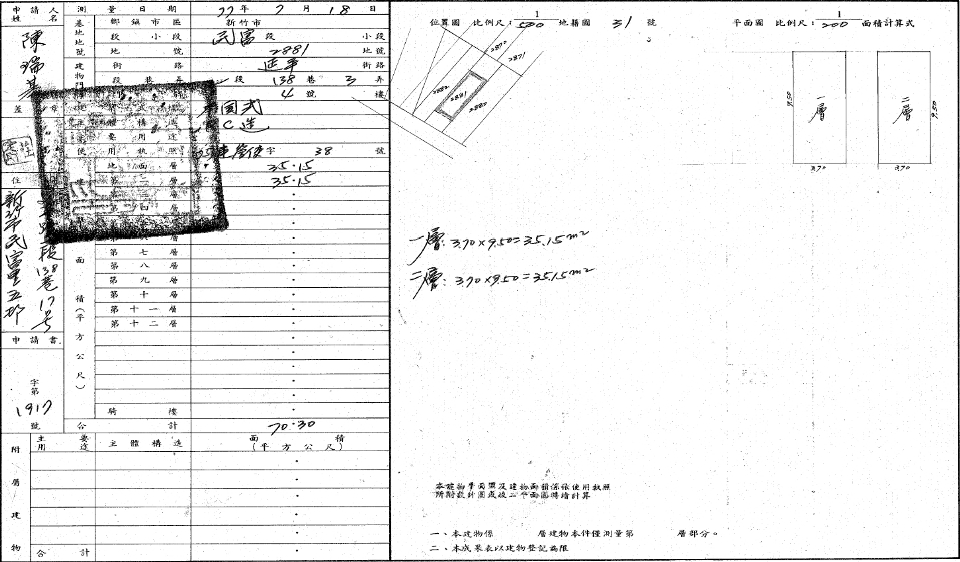 申請人姓名
陳瑞基
蓋章
住
新竹市民富里五鄰
段138巷17号
申請書
字第
1917
號
測量日期 77年7月18日
基地地號 鄉鎮市區 新竹市
段小段 民富段 小段
地號 2881 地號
建物門牌 街路 延平 街路
段巷弄 段 138巷 3弄
4號 樓
國式
C造
主要用途
使用執照 字 38 號
地面層 35.15
第二層 35.15
第七層
第八層
第九層
第十層
第十一層
第十二層
騎樓
面積(平方公尺)
合計 70.30
附屬建物
主要用途 主體構造 面積(平方公尺)
合計
位置圖 比例尺:1/500 地籍圖 31 號
2870
2871
2882
2881
2880
平面圖 比例尺:1/200 面積計算式
一層
9.50
3.70
二層
9.50
3.70
一層:3.70×9.50=35.15m²
二層:3.70×9.50=35.15m²
本建物平面圖及建物面積係依使用執照
一、本建物係 層建物本件僅測量第 層部分。
二、本成果表以建物登記為限